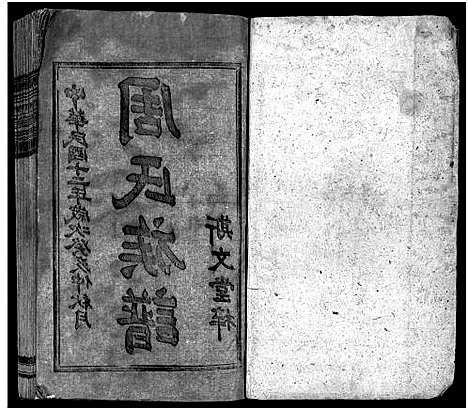 斯文堂梓
周氏族譜
中華民國十二年歲次癸亥仲秋月